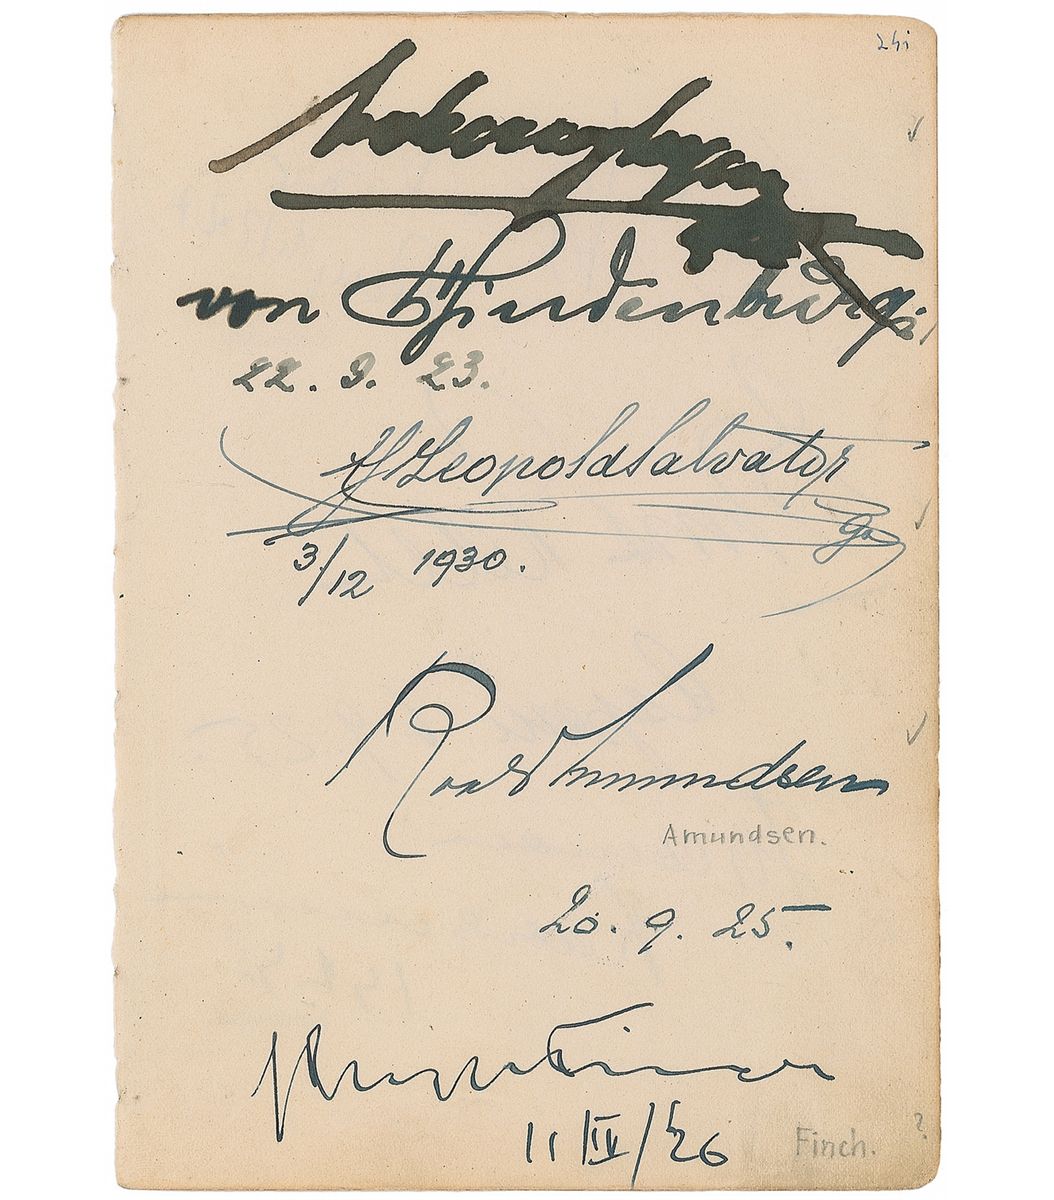 von Hindenburg
22. 9. 23.
Leopold Salvator
3/12 1930.
Roald Amundsen
Amundsen.
20. 9. 25.
11 IV/26
Finch. ?